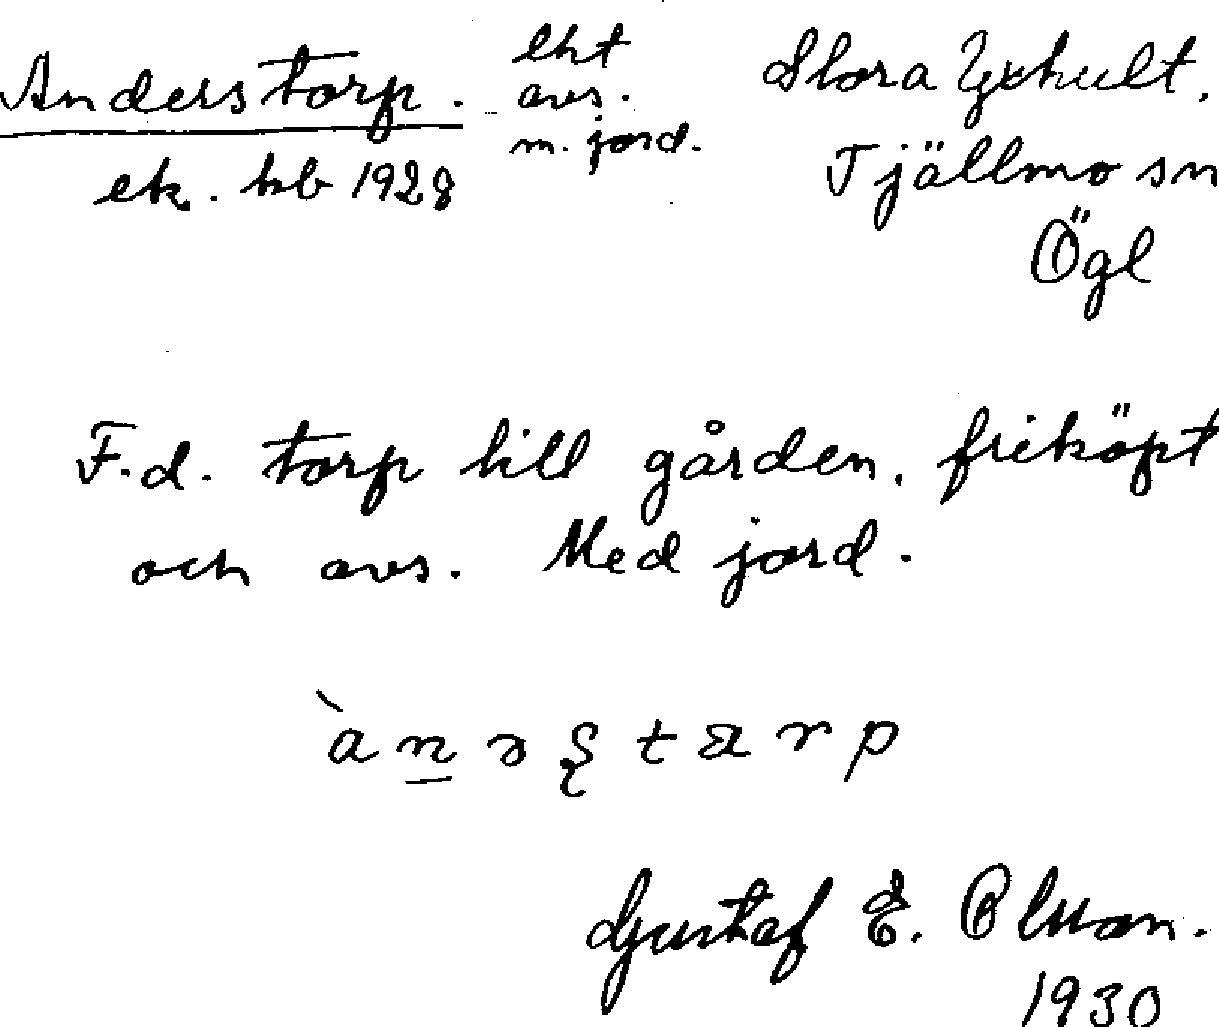 Anderstorp. lht avs. m. jord. Stora Yxhult.
ek. hb 1928 Tjällmo sn
Ögl
F.d. torp till gården, friköpt
och avs. Med jord.
Gustaf E.
1930